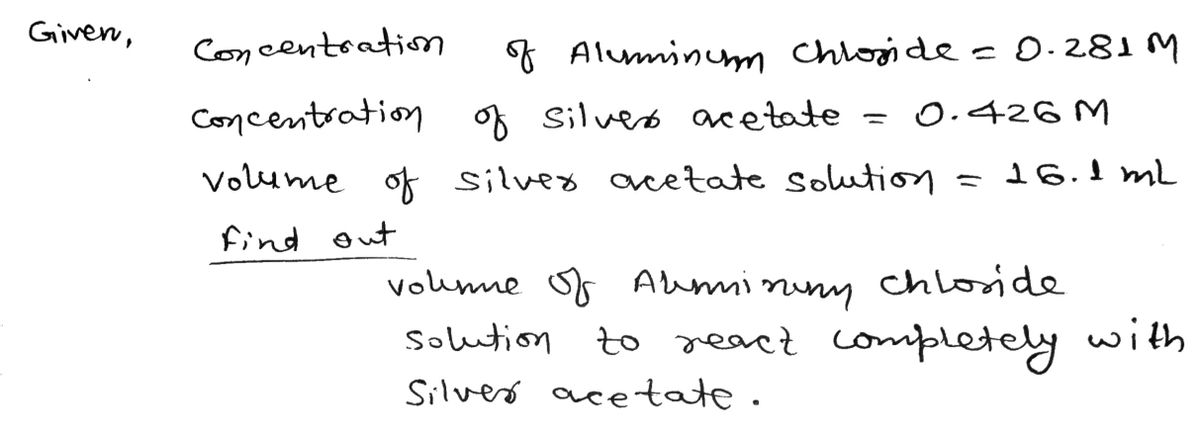 Given, Concentration of Aluminum Chloride = 0.281 M
Concentration of Silver acetate = 0.426 M
Volume of silver acetate solution = 16.1 mL
find out
volume of Aluminum chloride
solution to react completely with
Silver acetate.